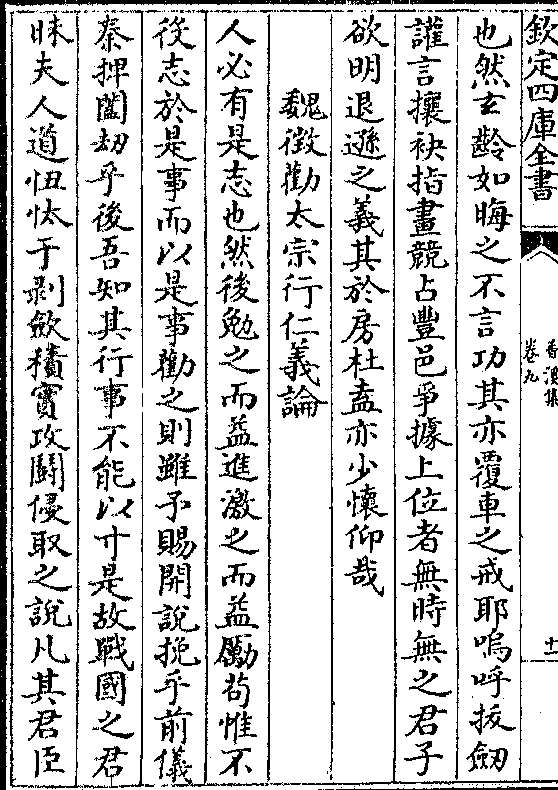 欽定四庫全書
卷九
十一
也然玄齡如晦之不言功其亦覆車之戒耶嗚呼拔劔
讙言攘袂指畫競占豐邑爭據上位者無時無之君子
欲明退遜之義其於房杜盍亦少懷仰哉
魏徵勸太宗行仁義論
人必有是志也然後勉之而益進激之而益勵苟惟不
後志於是事而以是事勸之則雖予賜開說挽乎前儀
秦押闔刼乎後吾知其行事不能以寸是故戰國之君
昧夫人道忸忲于剥斂積實攻鬬侵取之說凡其君臣